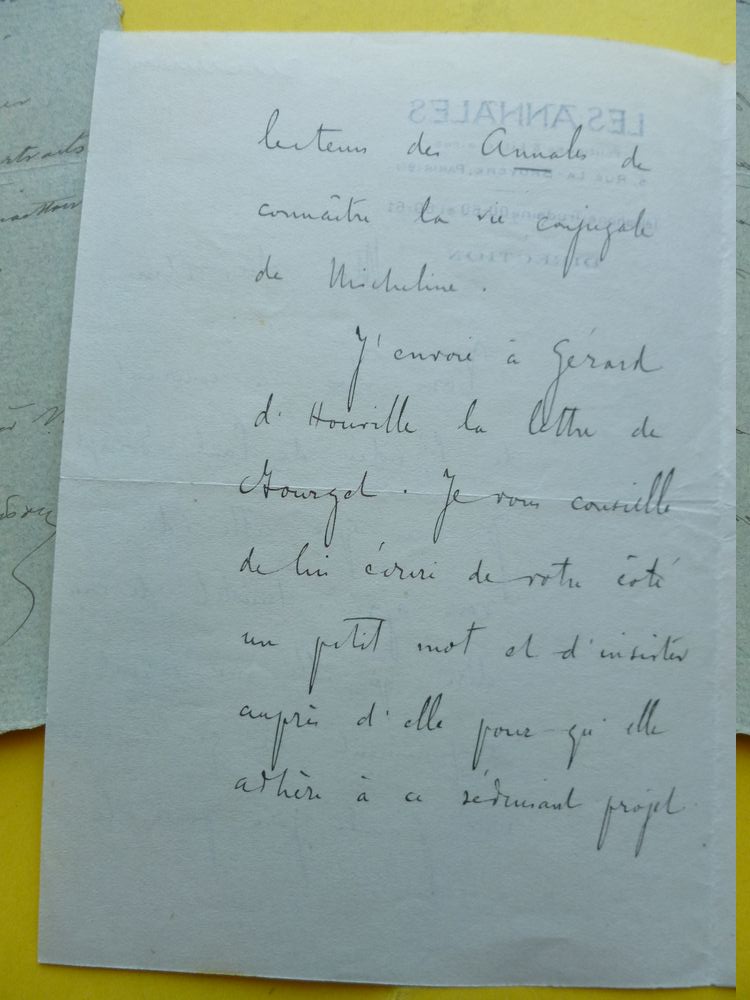 lecteurs des Annales de
connaître la vie conjugale
de Micheline.
J'envoie à Gérard
d'Houville la lettre de
Gourgel. Je vous conseille
de lui écrire de votre côté
un petit mot et d'insister
auprès d'elle pour qu'elle
adhère à ce séduisant projet.
LES ANNALES
5, RUE LA BRUYÈRE, PARIS (9e)
DIRECTION